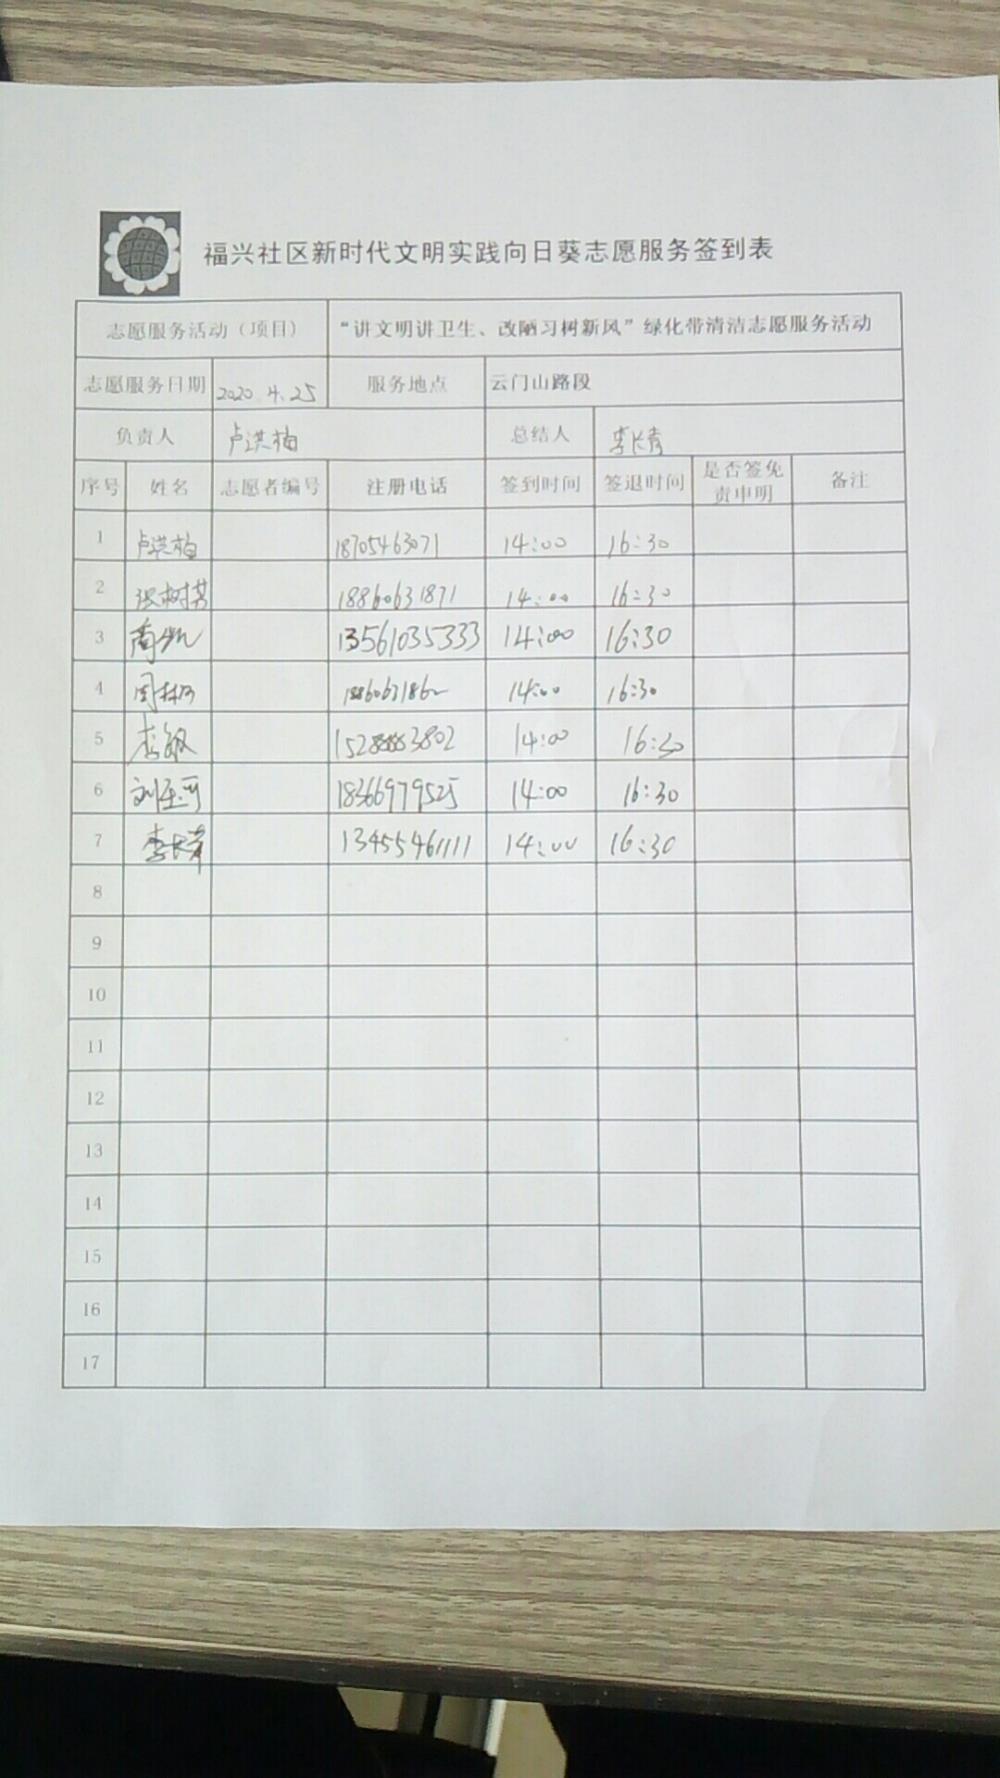 福兴社区新时代文明实践向日葵志愿服务签到表
志愿服务活动（项目） “讲文明讲卫生、改陋习树新风”绿化带清洁志愿服务活动
志愿服务日期 2020.4.25 服务地点 云门山路段
负责人 卢洪梅 总结人 李长青
序号 姓名 志愿者编号 注册电话 签到时间 签退时间 是否签免责申明 备注
1 卢洪梅 18705463071 14:00 16:30
2 张树芳 18860631871 14:00 16:30
3 13561035333 14:00 16:30
4 14:00 16:30
5 李敏 14:00 16:30
6 18366979525 14:00 16:30
7 李长青 13455461111 14:00 16:30
8
9
10
11
12
13
14
15
16
17